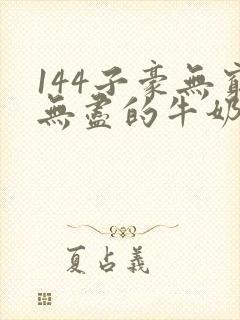 144子豪無窮
無盡的牛奶
夏占義